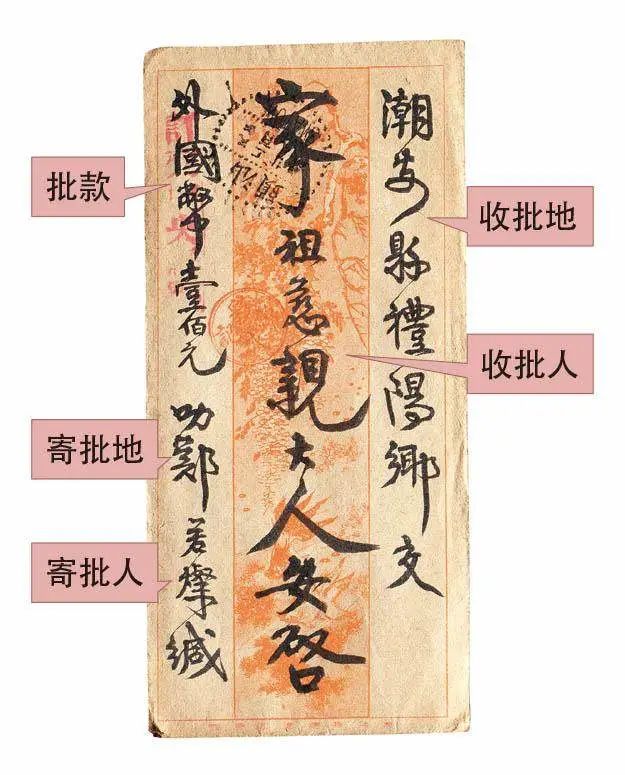 潮安縣禮陽鄉交
家祖慈親大人安啓
外國幣壹佰元
叻鄭若燦緘
批款
收批地
收批人
寄批地
寄批人